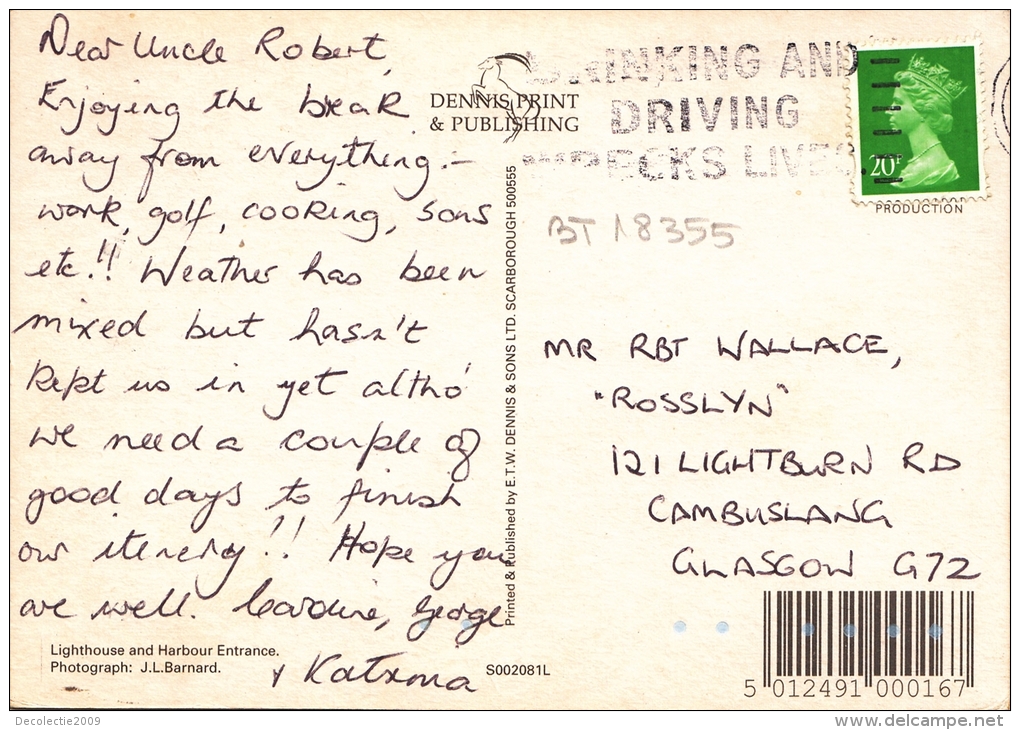 Dear Uncle Robert,
Enjoying the break
away from everything :-
work, golf, cooking, sons
etc.!! Weather has been
mixed but hasn't
kept us in yet altho'
we need a couple of
good days to finish
our itenery!! Hope you
are well. Caroline, George
+ Katrina
Lighthouse and Harbour Entrance.
Photograph: J.L.Barnard.
S002081L
DENNIS PRINT
& PUBLISHING
Printed & Published by E.T.W. DENNIS & SONS LTD. SCARBOROUGH 500555
DRINKING AND
DRIVING
WRECKS LIVES.
20P
PRODUCTION
BT 18355
MR RBT WALLACE,
"ROSSLYN"
121 LIGHTBURN RD
CAMBUSLANG
GLASGOW G72
5 012491 000167
Decolectie2009
www.delcampe.net